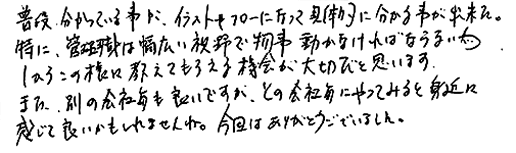 普段、分かっている事が、イラストやフローになって具体的に分かる事が出来た。
特に、管理職は幅広い視野で物事動かなければならないため
しかもこの様に教えてもらえる機会が大切だと思います。
また、別の会社毎も良いですが、どの会社毎にやってみると身近に
感じて良いかもしれませんね。今回はありがとうございました。